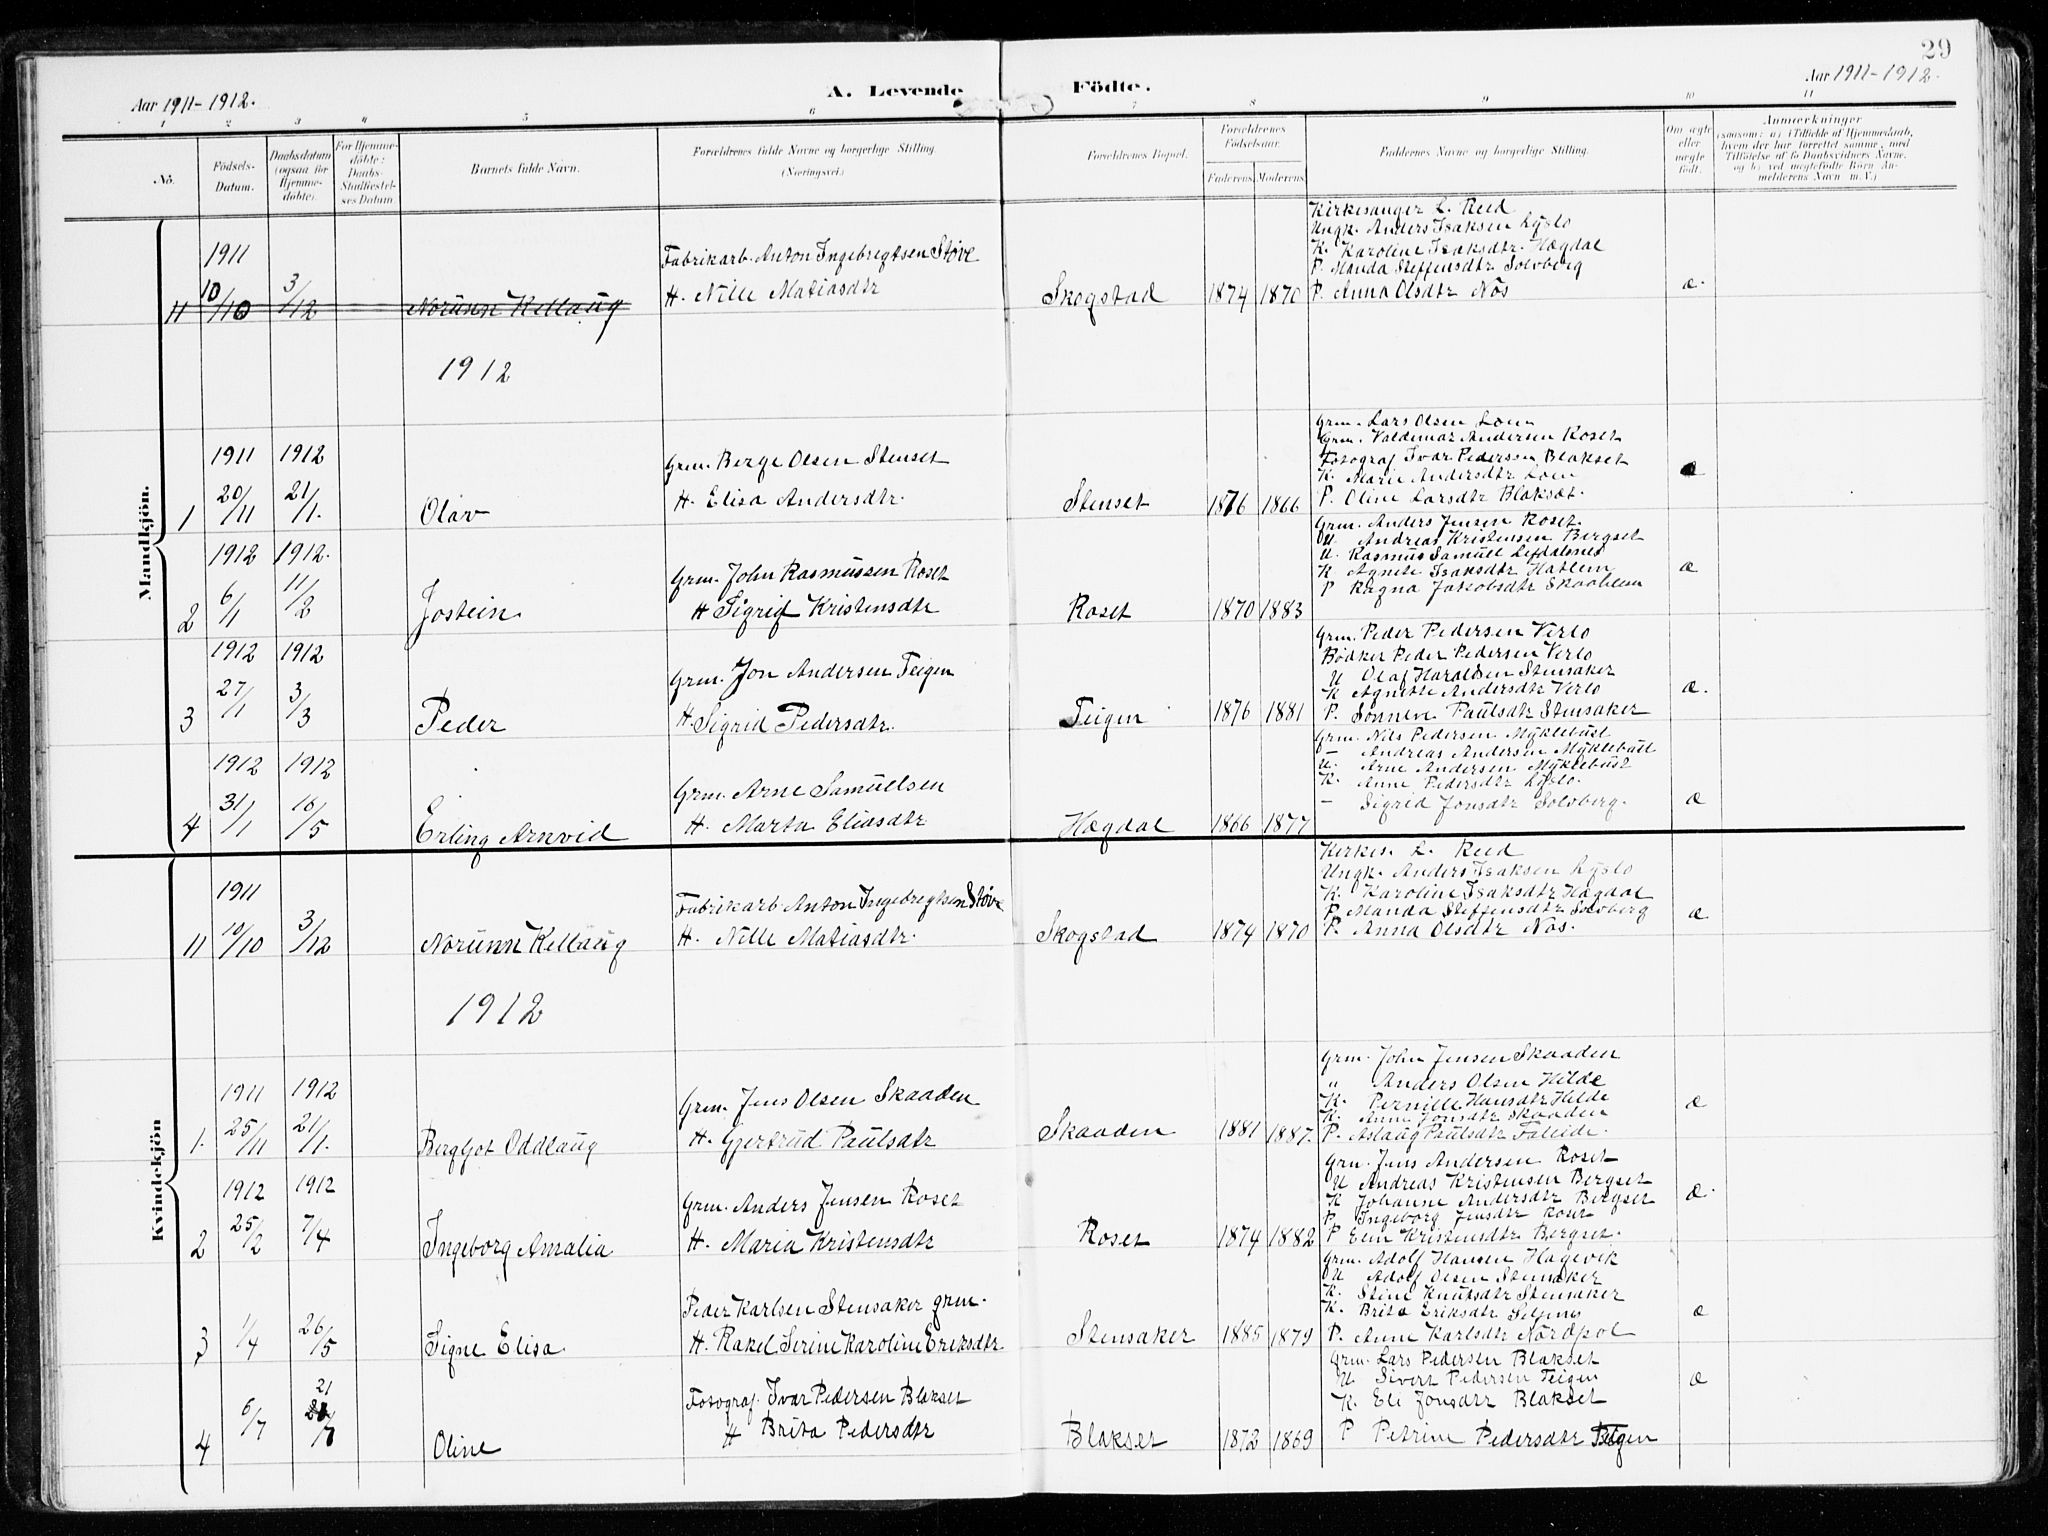 29
Aar 1911-1912.
A. Levende Födte.
Aar 1911-1912.
1 2 3 4 5 6 7 8 9 10 11
No.
Födsels-Datum.
Daabsdatum (ogsaa for Hjemme-döbte).
For Hjemme-döbte: Daabs-Stadfæstel-ses Datum.
Barnets fulde Navn.
Forældrenes fulde Navne og borgerlige Stilling.
(Næringsvei.)
Forældrenes Bopæl.
Forældrenes Födselsaar.
Faderens Moderens
Faddernes Navne og borgerlige Stilling.
Om ægte eller uægte födt.
Anmærkninger
(saasom: a) i Tilfælde af Hjemmedaab,
hvem der har forrettet samme, med
Tilföielse af to Daabsvidners Navne,
og b) ved uægtefödte Börn An-
melderens Navn m. V.)
Mandkjön.
Kirkesanger L. Reed
Ungk. Anders Isaksen Lyslo
1911
Fabrikarb. Anton Ingebregtsen Støve
K. Karoline Isaksdtr. Hægdal
P. Manda Steffensdtr Solvberg
11 10/10 3/12 Norunn Kellaug H. Nille Matiasdtr Skogstad 1874 1870 P. Anna Olsdtr Nös æ.
1912
Grm. Lars Olsen Loen
Grm. Valdemar Andersen Roset
1911 1912 Grm. Berge Olsen Stenset
Fotograf Ivar Pedersen Blakset
K. Marie Andersdtr Loen æ
1 20/11 21/1. Olav H. Elisa Andersdtr. Stenset 1876 1866 P. Oline Larsdtr Blakset.
Grm. Anders Jensen Roset.
1912 1912. U Andreas Kristensen Bergset
U. Rasmus Samuel Lefdalsnes
Grm. John Rasmussen Roset
K Agnete Isaksdtr Hatlem æ
P Ragna Jakobsdtr Skaahlem
2 6/1 11/2 Jostein. H Sigrid Kristensdtr Roset 1870 1883
Grm. Peder Pedersen Verlo
1912 1912 Bödker Peder Pedersen Verlo
Grm. Jon Andersen Teigen
U Olaf Haraldsen Stensaker
K Agnette Andersdtr Verlo æ.
3 27/1 3/3 Peder H. Sigrid Pedersdtr. Teigen 1876 1881 P. Sönneve Paulsdtr Stensaker
Grm. Nils Pedersen Myklebust
— Andreas Andersen Myklebust
1912 1912 U. Arne Andersen Myklebust
Grm. Arne Samuelsen
K. Anne Pedersdtr Lyslo.
— Sigrid Jonsdtr Solvberg. æ
4 31/1 16/5 Erling Arnvid H. Marta Eliasdtr Hægdal 1866 1877
Kvindekjön
Kirkes. L. Reed
Ungk. Anders Isaksen Lyslo
1911 Fabrikarb. Anton Ingebregtsen Støve
K. Karoline Isaksdtr Hægdal
P. Manda Steffensdtr Solvberg æ
11 10/10 3/12 Norunn Kellaug H. Nille Matiasdtr. Skogstad 1874 1870 P. Anna Olsdtr Nös.
1912
Grm. John Jensen Skaaden
1911 1912 " Anders Olsen Hilde
Grm. Jens Olsen Skaaden
K. Pernille Hansdtr Hilde æ
K. Anne Jonsdtr Skaaden
1. 25/11 21/1. Bergljot Oddlaug H. Gjertrud Paulsdtr Skaaden 1881 1887. P. Aslaug Paulsdtr Faleide.
Grm. Jens Andersen Roset
1912 1912 U Andreas Kristensen Bergset
Grm. Anders Jensen Roset
K Johanne Andersdtr Bergset æ.
P. Ingeborg Jensdtr Roset
2 25/2 7/4 Ingeborg Amalia H. Maria Kristensdtr Roset 1874 1882 P Elen Kristensdtr Bergset.
Grm. Adolf Hansen Hagevik
U Adolf Olsen Stensaker
Peder Karlsen Stensaker grm.
K. Stine Knutsdtr Stensaker
K. Brita Eriksdtr Seljenes æ
3 1/4 26/5 Signe Elisa H. Rakel Serine Karoline Eriksdtr Stensaker 1885 1879 P. Anne Karlsdtr Nordpol
Grm. Lars Pedersen Blakset
21 Fotograf. Ivar Pedersen Blakset
U. Sivert Pedersen Teigen æ
K. Eli Jonsdtr Blakset
4 6/7 /7 Oline H Brita Pedersdtr Blakset 1872 1869 P Petrine Pedersdtr Teigen